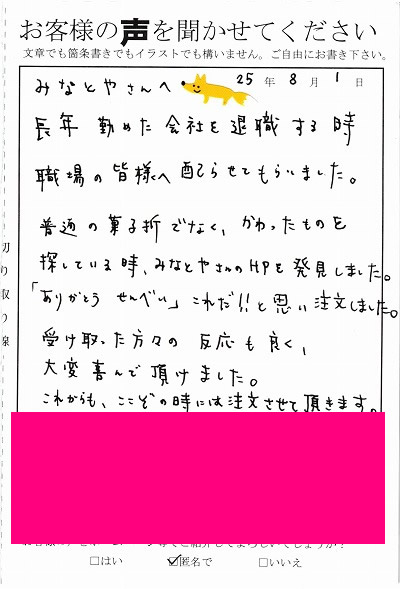 お客様の声を聞かせてください
文章でも箇条書きでもイラストでも構いません。ご自由にお書き下さい。
みなとやさんへ 25年 8月 1日
長年 勤めた 会社を 退職 する 時
職場の 皆様へ 配らせてもらいました。
普通の菓子折でなく、かわったものを
探している時、みなとやさんのHPを発見しました。
「ありがとう せんべい」これだ!!と思い 注文しました。
受け取った方々の 反応も良く、
大変喜んで頂けました。
これからも、ここぞの時には注文させて頂きます。
切り取り線
□はい ☑匿名で □いいえ